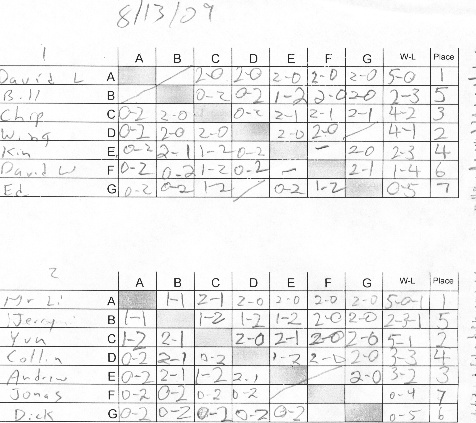 8/13/09
1
A B C D E F G W-L Place
David L A 2-0 2-0 2-0 2-0 2-0 5-0 1
Bill B 0-2 0-2 1-2 2-0 2-0 2-3 5
Chip C 0-2 2-0 0-2 2-1 2-1 2-1 4-2 3
Wing D 0-2 2-0 2-0 2-0 2-0 4-1 2
Kin E 0-2 2-1 1-2 0-2 – 2-0 2-3 4
David W F 0-2 0-2 1-2 0-2 – 2-1 1-4 6
Ed G 0-2 0-2 1-2 0-2 1-2 0-5 7
2
A B C D E F G W-L Place
Mr Li A 1-1 2-1 2-0 2-0 2-0 2-0 5-0-1 1
Jerry B 1-1 1-2 1-2 1-2 2-0 2-0 2-3-1 5
Yun C 1-2 2-1 2-0 2-1 2-0 2-0 5-1 2
Collin D 0-2 2-1 0-2 1-2 2-0 2-0 3-3 4
Andrew E 0-2 2-1 1-2 2-1 2-0 3-2 3
Jonas F 0-2 0-2 0-2 0-2 0-4 7
Dick G 0-2 0-2 0-2 0-2 0-2 0-5 6